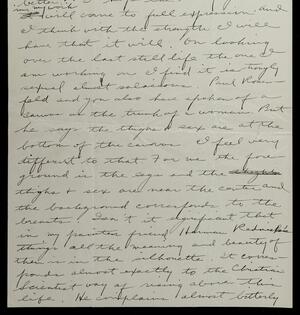 better
my work
will come to full expression and
I think with the strength I will
have that it will. On looking
over the last still life the one I
am working on I find it is strongly
sexual almost salacious. Paul Rosen-
feld and you also have spoken of a
canvas as the trunk of a woman. But
he says the thighs & sex are at the
bottom of the canvas. I feel very
different to that. For me the fore-
ground is the legs and the
thighs & sex are near the center and
the background corresponds to the
breasts. Isn't it significant that
in my painter friend Herman
things all the meaning and beauty of
them is in the silhouette. It corres-
ponds almost exactly to the Christian
Scientist way of rising above this
life. He complains almost bitterly